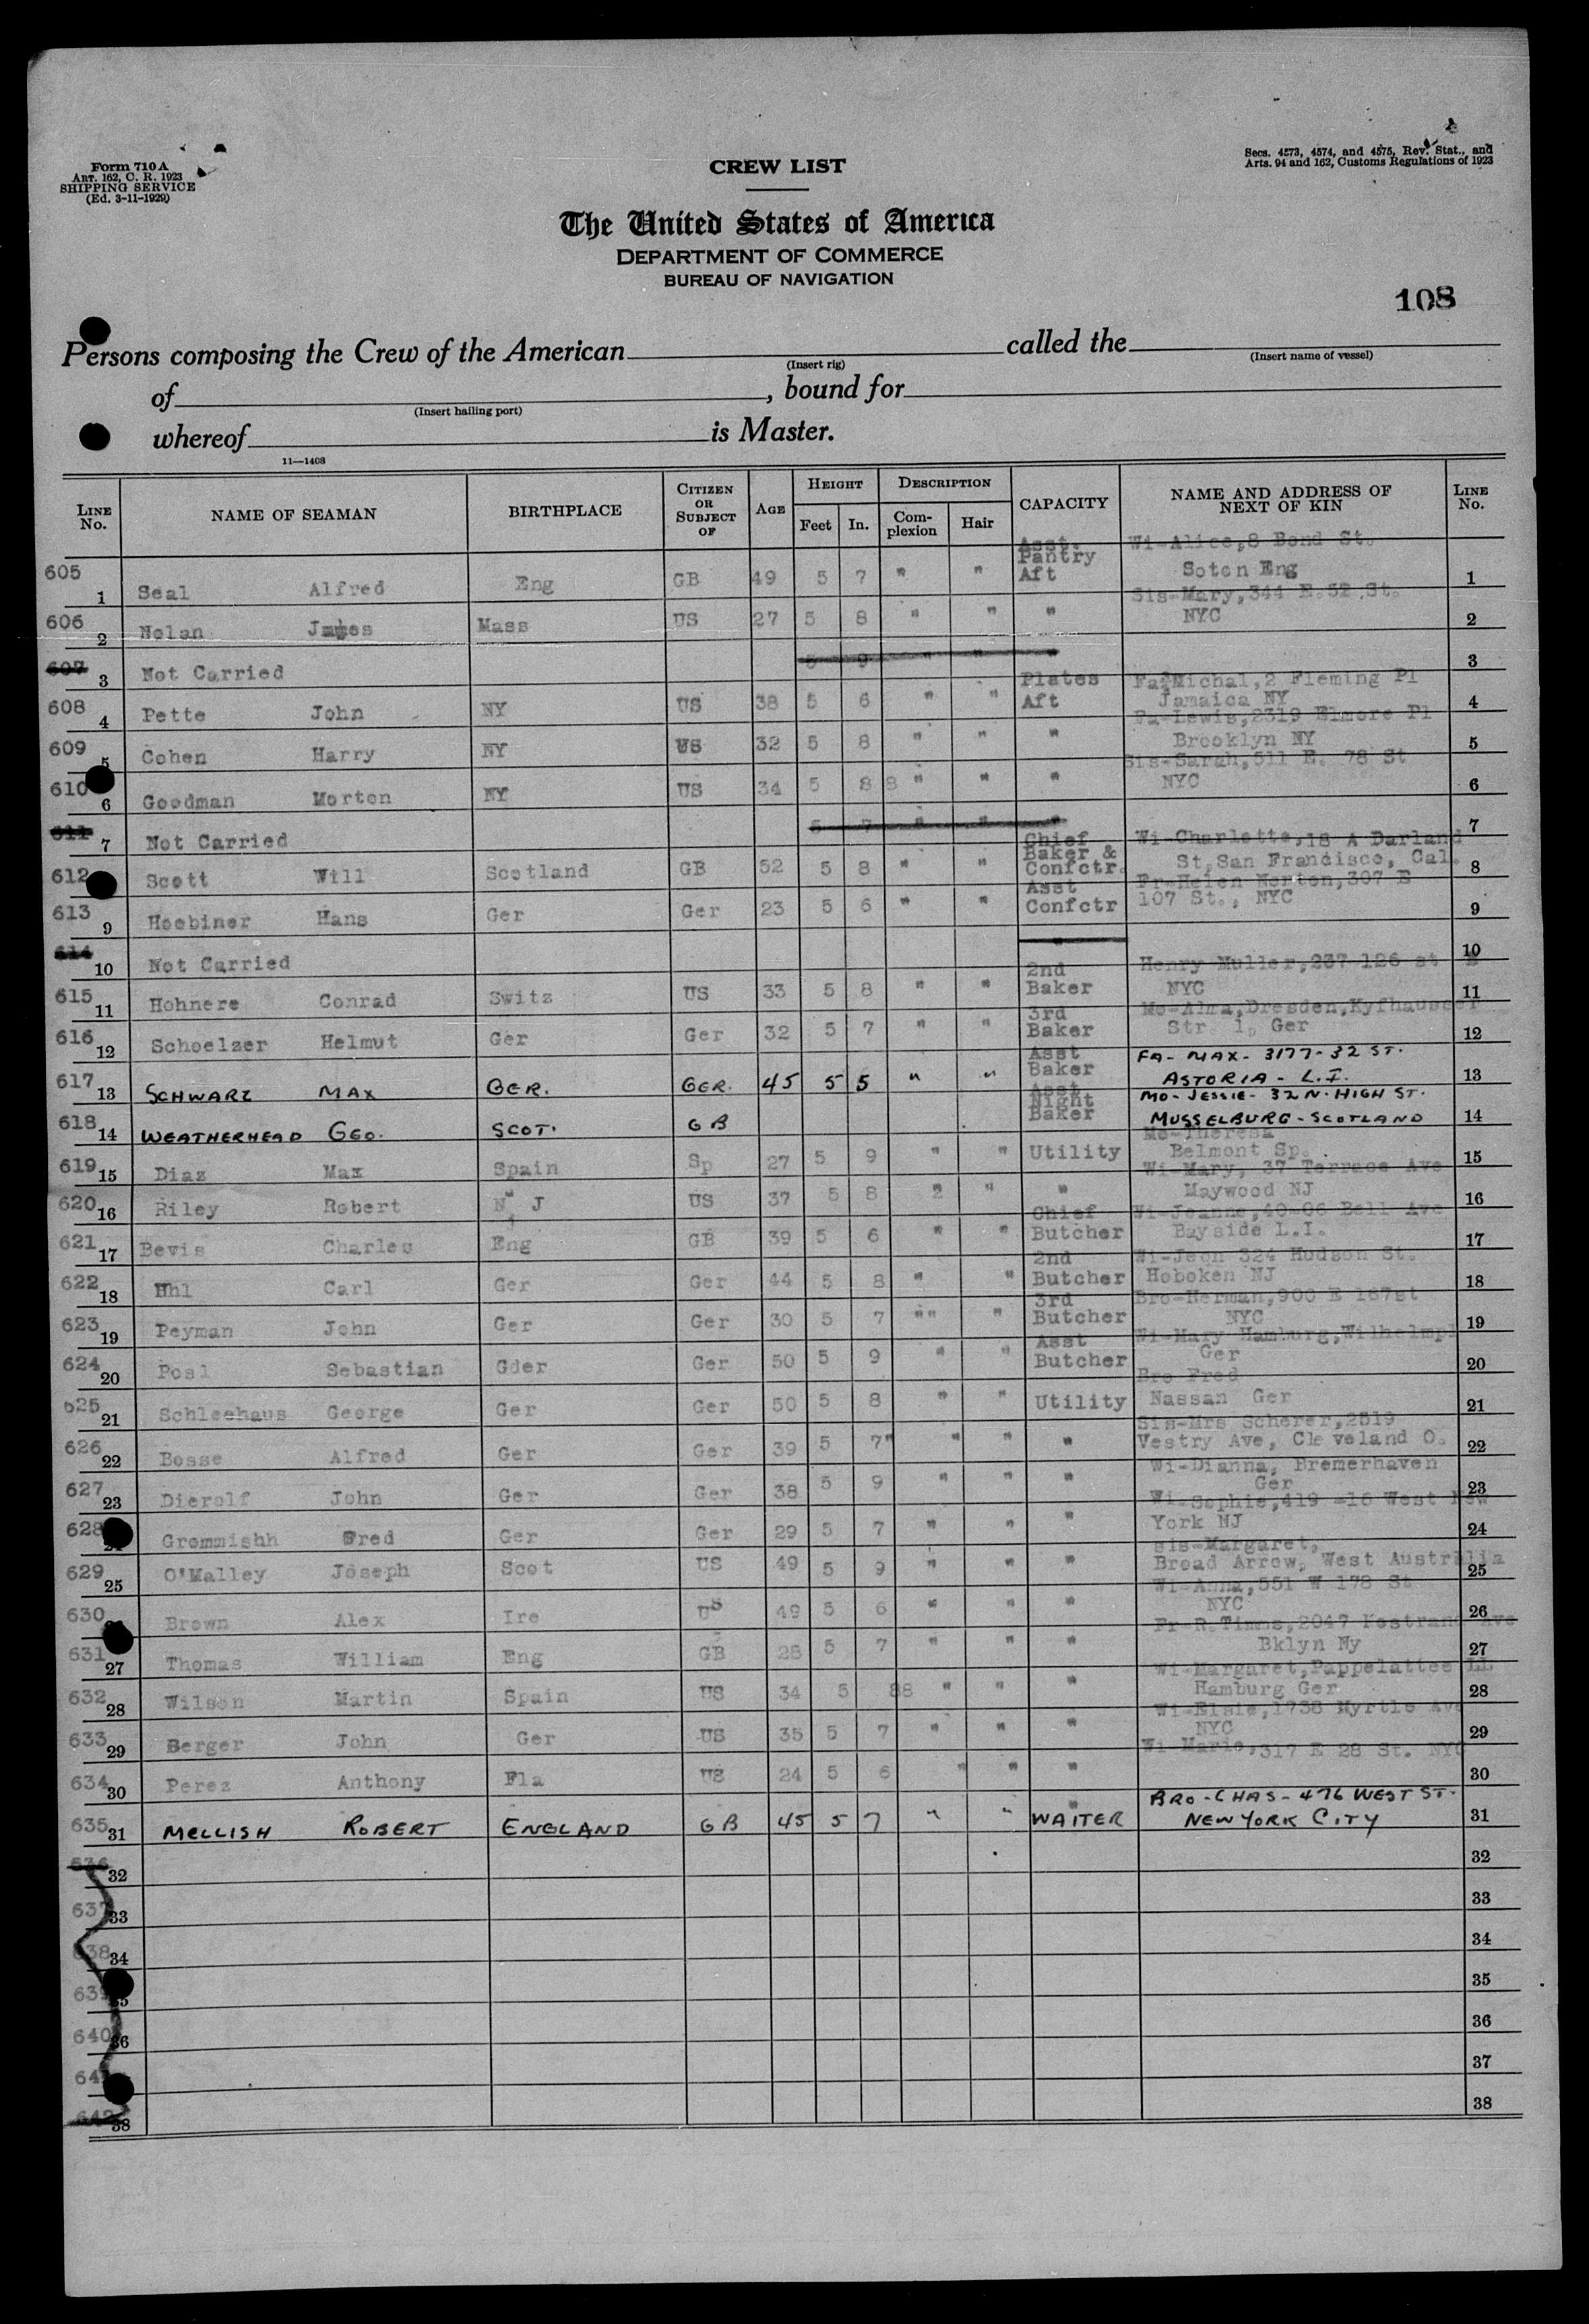 Form 710 A
ART. 162, C. R. 1923
SHIPPING SERVICE
(Ed. 3-11-1929)
CREW LIST
Secs. 4573, 4574, and 4575, Rev. Stat., and
Arts. 94 and 162, Customs Regulations of 1923
The United States of America
DEPARTMENT OF COMMERCE
BUREAU OF NAVIGATION
108
Persons composing the Crew of the American called the
(Insert rig) (Insert name of vessel)
of , bound for
(Insert hailing port)
whereof is Master.
11—1408
LINE No. NAME OF SEAMAN BIRTHPLACE CITIZEN OR SUBJECT OF AGE HEIGHT Feet In. DESCRIPTION Complexion Hair CAPACITY NAME AND ADDRESS OF NEXT OF KIN LINE No.
605 1 Seal Alfred Eng GB 49 5 7 " " Asst. Pantry Aft Wi-Alice,8 Bond St. Soton Eng 1
606 2 Nolan James Mass US 27 5 8 " " " Sis-Mary,344 E.52 St. NYC 2
607 3 Not Carried 5 9 " " " 3
608 4 Pette John NY US 38 5 6 " " Plates Aft Fa-Michal,2 Fleming Pl Jamaica NY 4
609 5 Cohen Harry NY US 32 5 8 " " " Fa-Lewis,2319 Elmore Pl Brooklyn NY 5
610 6 Goodman Morton NY US 34 5 8 8 " " " Sis-Sarah,511 E. 78 St NYC 6
611 7 Not Carried 5 7 " " " 7
612 Scott Will Scotland GB 52 5 8 " " Chief Baker & Confctr. Wi-Charlotte,18 A Darland St,San Francisco, Cal. 8
613 9 Hoebiner Hans Ger Ger 23 5 6 " " Asst Confctr Fr-Helen Norton,307 E 107 St., NYC 9
614 10 Not Carried " 10
615 11 Hohnere Conrad Switz US 33 5 8 " " 2nd Baker Henry Muller,237 126 st E NYC 11
616 12 Schoelzer Helmut Ger Ger 32 5 7 " " 3rd Baker Mo-Alma,Dresden,Kyfhausser Str. 1, Ger 12
617 13 SCHWARZ MAX GER. GER. 45 5 5 " " Asst Baker FA- MAX- 3177-32 ST. ASTORIA - L.I. 13
618 14 WEATHERHEAD GEO. SCOT. GB Asst Night Baker MO- JESSIE- 32 N. HIGH ST. MUSSELBURG - SCOTLAND 14
619 15 Diaz Max Spain Sp 27 5 9 " " Utility Mo-Theresa Belmont Sp. 15
620 16 Riley Robert N. J US 37 5 8 " " " Wi-Mary, 37 Terrace Ave Maywood NJ 16
621 17 Bevis Charles Eng GB 39 5 6 " " Chief Butcher Wi-Jeanne,40-06 Bell Ave Bayside L.I. 17
622 18 Uhl Carl Ger Ger 44 5 8 " " 2nd Butcher Wi-Jeon 324 Hudson St. Hoboken NJ 18
623 19 Peyman John Ger Ger 30 5 7 "" " 3rd Butcher Bro-Herman,900 E 167st NYC 19
624 20 Posl Sebastian Gder Ger 50 5 9 " " Asst Butcher Wi-Mary Hamburg,Wilhelmpl Ger 20
625 21 Schleehaus George Ger Ger 50 5 8 " " Utility Bro Fred Nassan Ger 21
626 22 Bosse Alfred Ger Ger 39 5 7" " " " Sis-Mrs Scherer,2519 Vestry Ave, Cleveland O. 22
627 23 Dierolf John Ger Ger 38 5 9 " " " Wi-Dianna, Bremerhaven Ger 23
628 Grommishh Fred Ger Ger 29 5 7 " " " Wi-Sophie,419 -16 West New York NJ 24
629 25 O'Malley Joseph Scot US 49 5 9 " " " Sis-Margaret, Broad Arrow, West Australia 25
630 Brown Alex Ire US 49 5 6 " " " Wi-Anna,551 W 178 St NYC 26
631 27 Thomas William Eng GB 28 5 7 " " " Fr-R.Timms,2047 Nostrand Ave Bklyn Ny 27
632 28 Wilson Martin Spain US 34 5 88 " " " Wi-Margaret,Pappelattee LL Hamburg Ger 28
633 29 Berger John Ger US 35 5 7 " " " Wi-Elsie,1738 Myrtle Ave NYC 29
634 30 Perez Anthony Fla US 24 5 6 " " " Wi-Marie,317 E 28 St. NYC 30
635 31 MELLISH ROBERT ENGLAND GB 45 5 7 " " " WAITER BRO-CHAS- 476 WEST ST. NEW YORK CITY 31
636 32 32
637 33 33
638 34 34
639 35 35
640 36 36
641 37
642 38 38